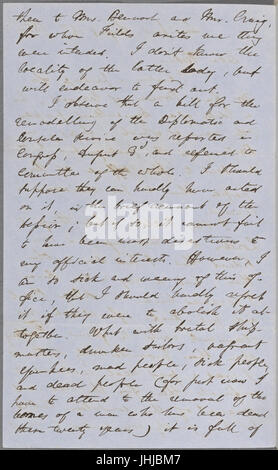 them to Mrs. Bennoch and Mrs. Craig,
for whom Fields writes me they
were intended. I don't know the
locality of the latter lady, but
will endeavor to find out.
I observe that a bill for the
remodelling of the Diplomatic and
Consular service was reported in
Congress, August 3d, and referred to
committee of the whole. I should
suppose they can hardly have acted
on it, in the brief remnant of the
session; but if so, it cannot fail
to have been most disastrous to
my official interests. However, I
am so sick and weary of this of-
fice, that I should hardly regret
it if they were to abolish it al-
together. What with brutal ship-
masters, drunken sailors, vagrant
Yankees, mad people, sick people,
and dead people (for just now I
have to attend to the removal of the
bones of a man who has been dead
these twenty years) it is full of
alamy
Image ID: JHJBM7
www.alamy.com